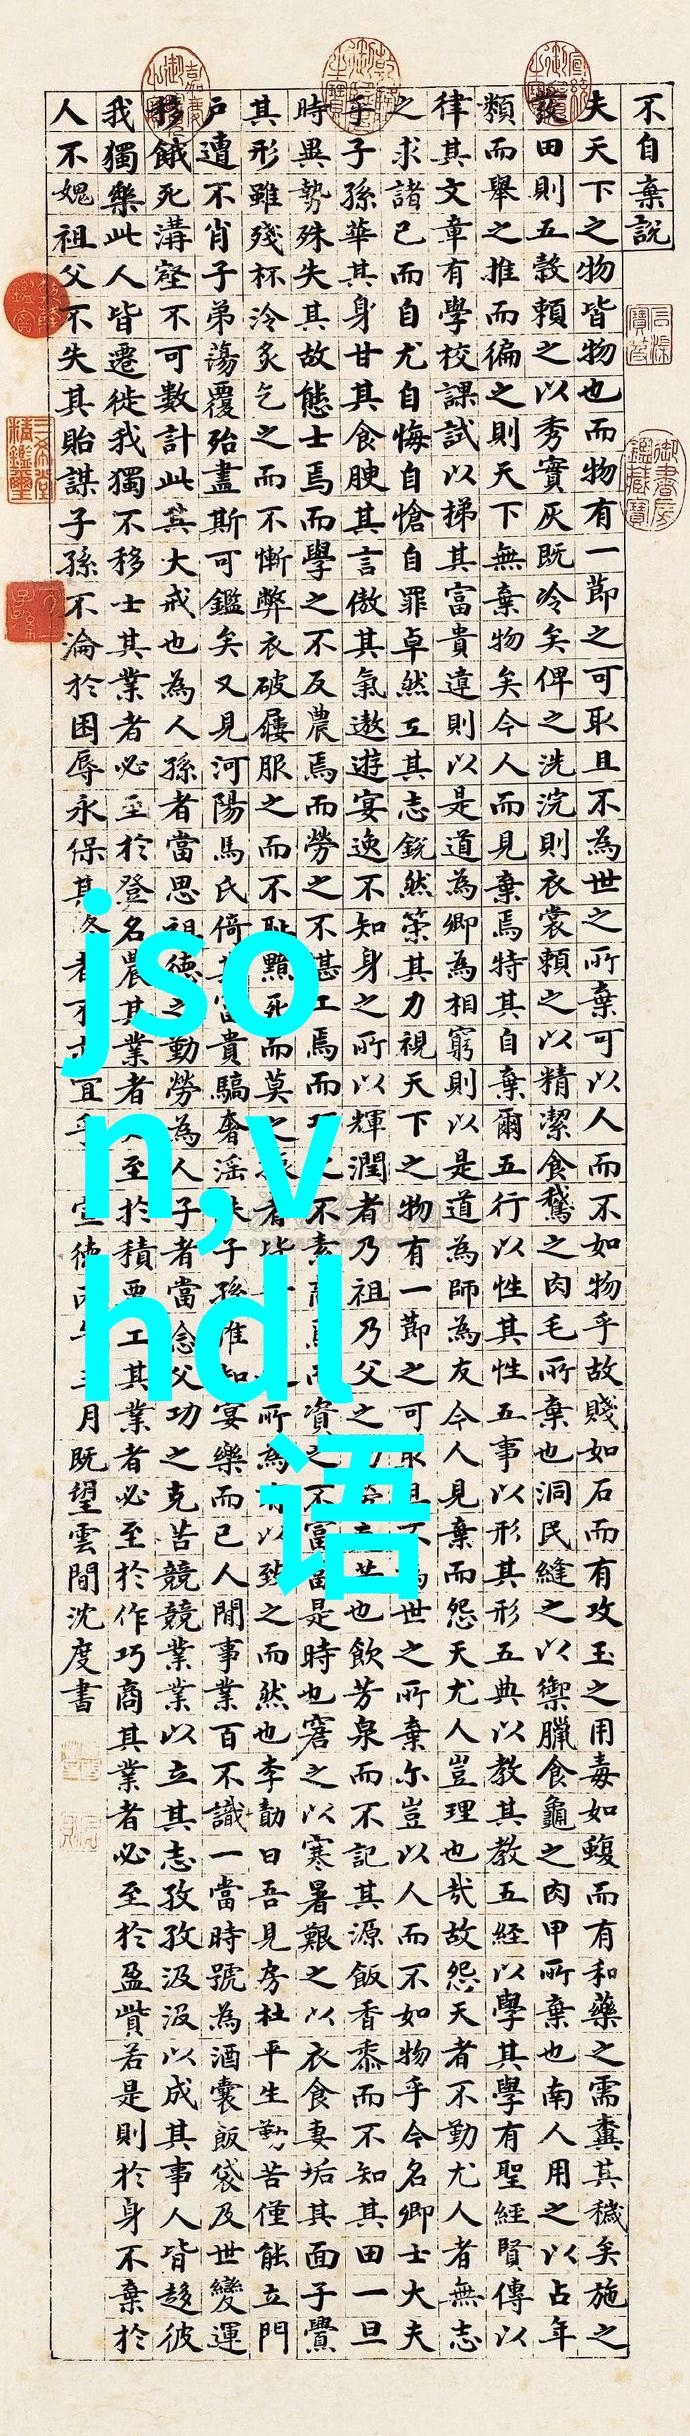 不自棄說
夫天下之物皆物也而物有一節之可取且不為世之所棄可以人而不如物乎故賤如石而有攻玉之用毒如蝮而有和藥之需糞其穢矣施之
田則五穀賴之以秀實灰既冷矣俾之洗浣則衣裳賴之以精潔食鵝之肉毛所棄也洞民縫之以禦臘食龜之肉甲所棄也南人用之以占年
類而舉之推而徧之則天下無棄物矣今人而見棄焉特其自棄爾五行以性其性五事以形其形五典以教其教五經以學其學有聖經賢傳以
律其文章有學校課試以梯其富貴達則以是道為卿為相窮則以是道為師為友今人見棄而怨天尤人豈理也哉故怨天者不勤尤人者無志
之求諸己而自尤自悔自愴自罪卓然工其志銳然策其力視天下之物有一節之可取且不為世之所棄尒豈以人而不如物乎今名卿士大夫
乎子孫華其身甘其食腴其言傲其氣遨遊宴逸不知身之所以輝潤者乃祖乃父之苦也飲芳泉而不記其源飯香黍而不知其田一旦
時異勢殊失其故態士焉而學之不反農焉而勞之不甚工焉而巧之不素商焉而資之不富當是時也窘之以寒暑艱之以衣食妻垢其面子釁
其形雖殘杯冷炙乞之而不慚弊衣破屨服之而不恥黯死而莫之振者皆之所為有以致之而然也李勣曰吾見房杜平生勤苦僅能立門
戶遭不肖子弟蕩覆殆盡斯可鑑矣又見河陽馬氏倚其富貴驕奢淫佚子孫惟知宴樂而已人間事業百不識一當時號為酒囊飯袋及世變運
移餓死溝壑不可數計此其大戒也為人孫者當思祖德之勤勞為人子者當念父功之克苦競競業業以立其志孜孜汲汲以成其事人皆趍彼
我獨樂此人皆遷徙我獨不移士其業者必至於登名農其業者必至於積粟工其業者必至於作巧商其業者必至於盈貲若是則於身不棄於
人不媿祖父不失其貽謀子孫不淪於困辱永保其終者不亦宜乎
宣德丙午三月既望雲間沈度書
jso
n,v
hdl
语